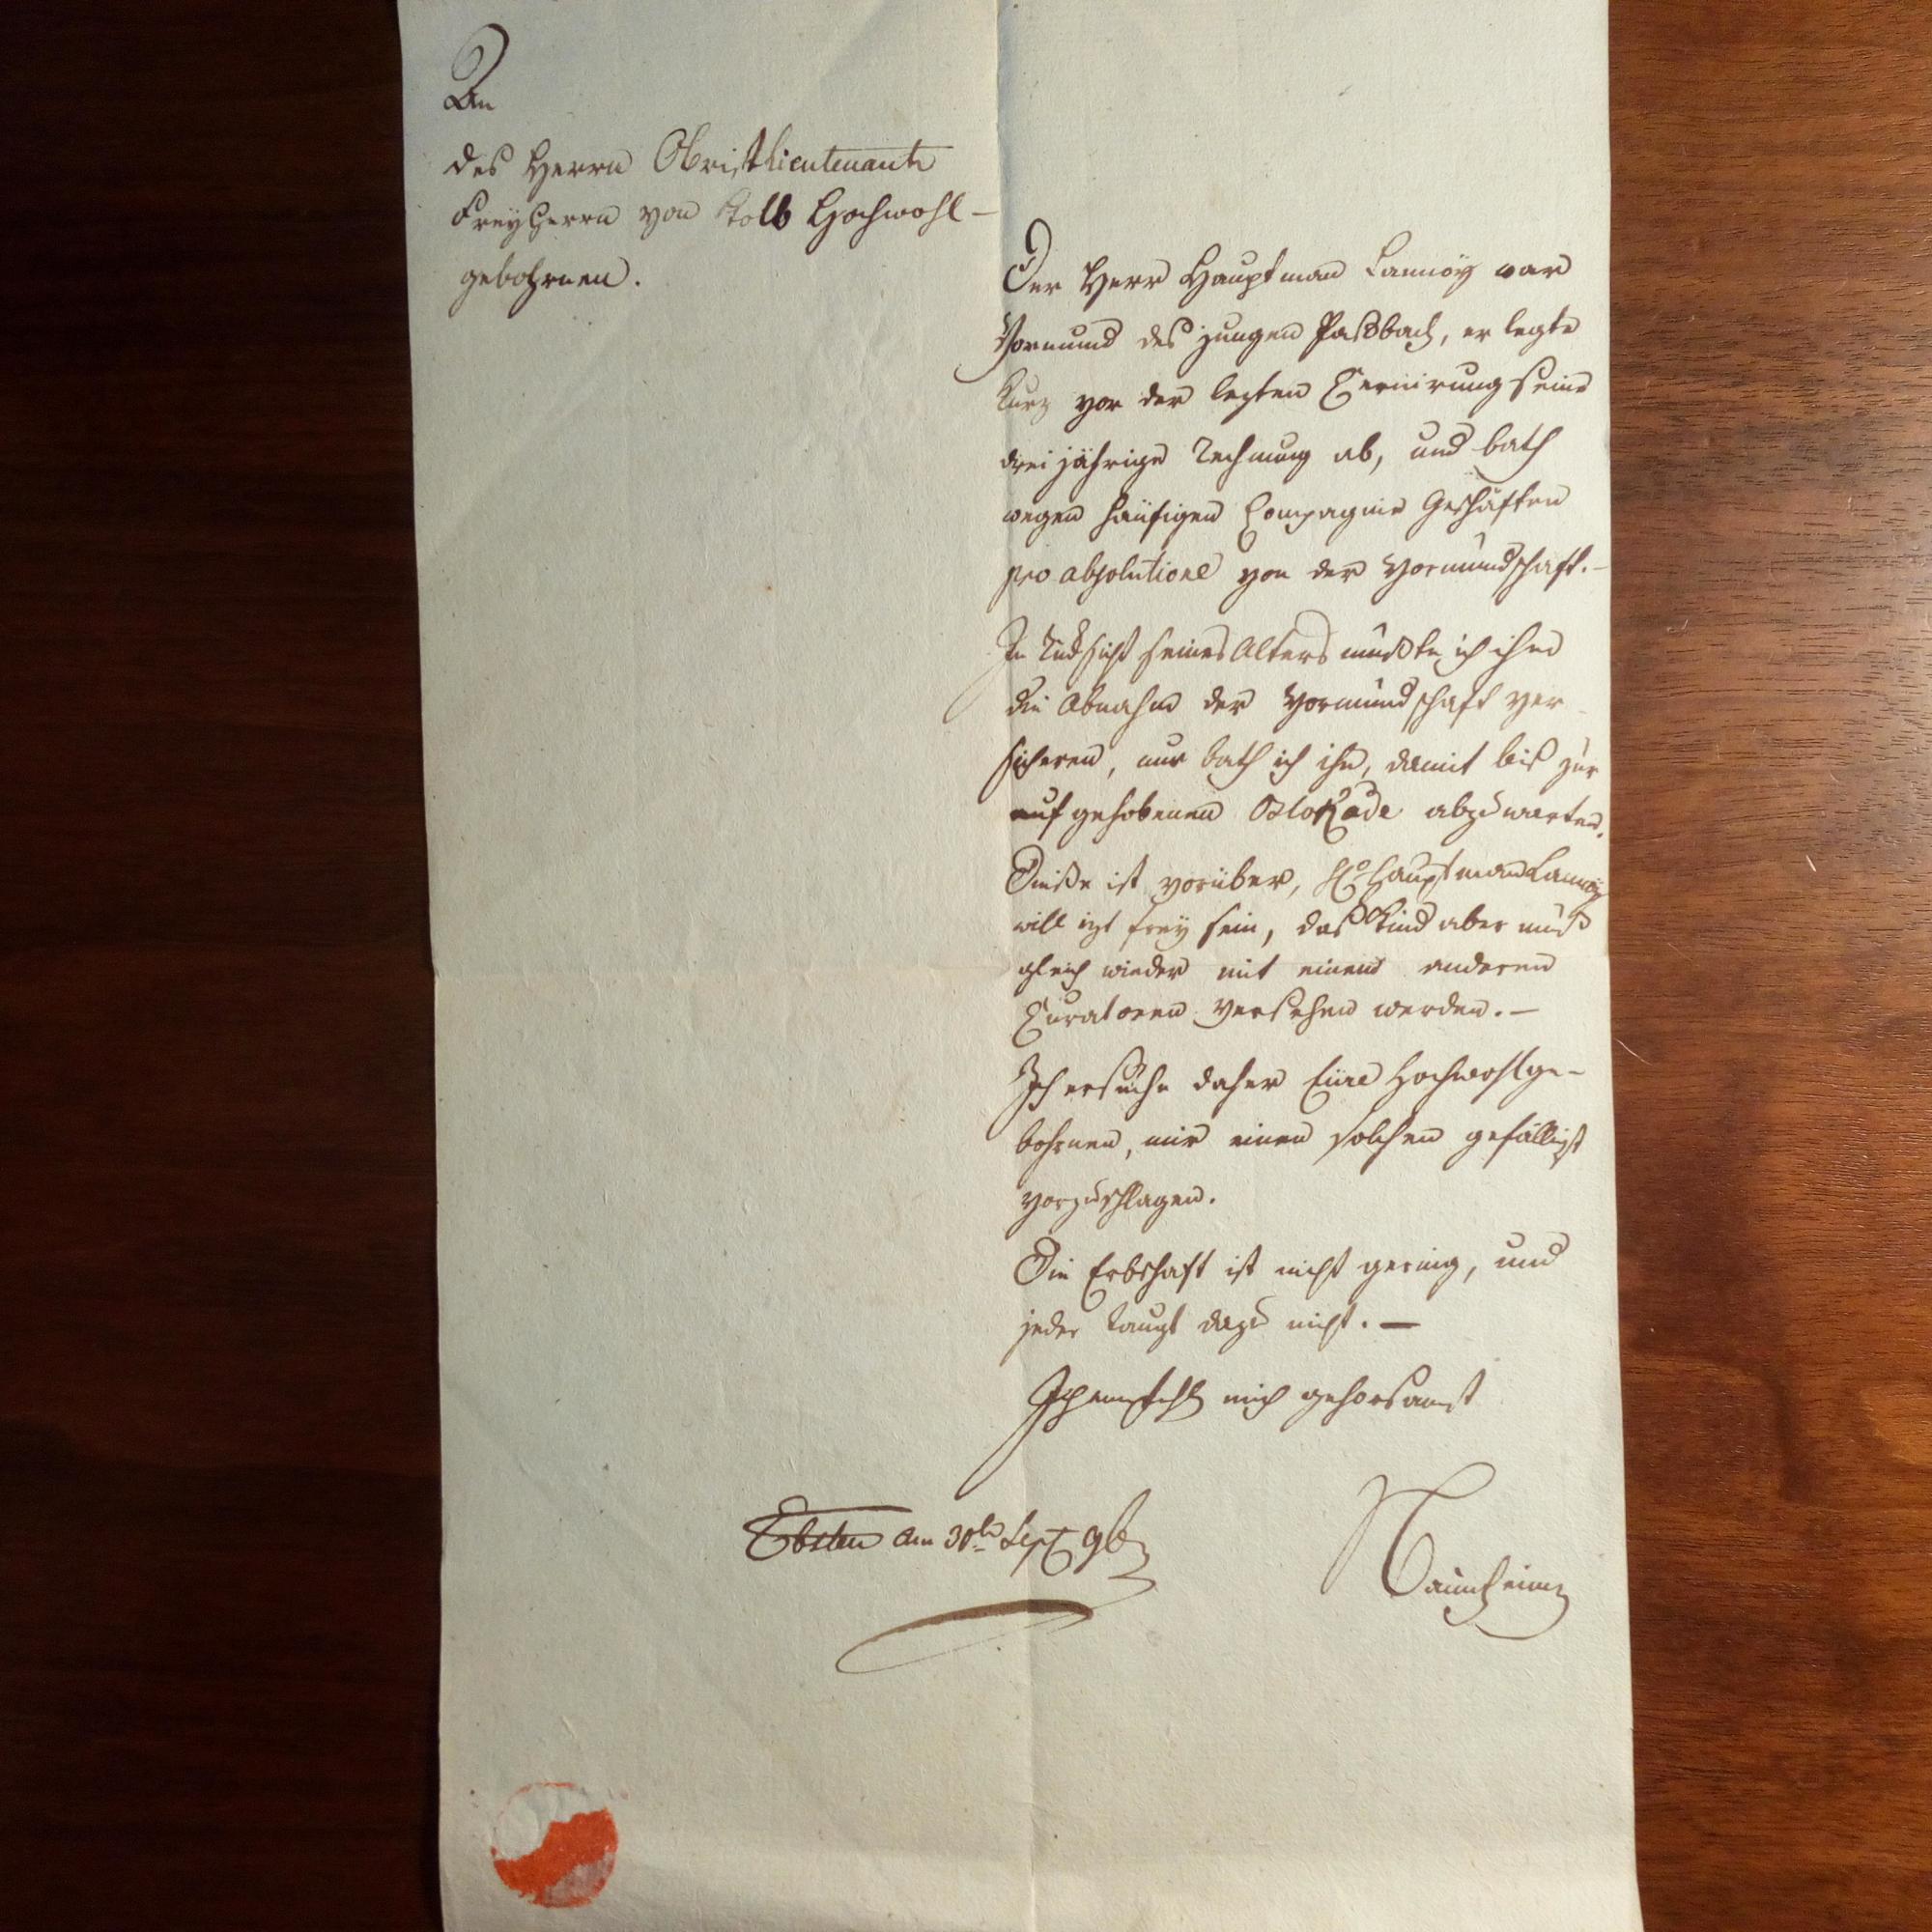 An
des Herrn Obristlieutenants
Freyherrn von Kolb Hochwohl-
gebohrnen.
Der Herr Hauptman Lannoÿ war
Vormund des jungen Paßbach, er legte
kurz vor der lezten Cernirung seine
dreijährige Rechnung ab, und bath
wegen häufigen Compagnie Geschäften
pro absolutione von der Vormundschaft.-
In Rücksicht seines Alters mußte ich ihm
die Abnahm der Vormundschaft ver-
sicheren, nur bath ich ihn, damit bis zur
aufgehobenen Blokade abzuwarten.
Dieße ist vorüber, Hr Hauptman Lannoÿ
will izt freÿ sein, das Kind aber muß
gleich wieder mit einem anderen
Curatoren versehen werden.-
Ich ersuche daher Eüre Hochwohlge-
bohrnen, mir einen solchen gefälligst
vorzuschlagen.
Die Erbschaft ist nicht gering, und
jeder taugt dazu nicht.-
Ich empfehle mich gehorsamst
am 30ten Sept 96